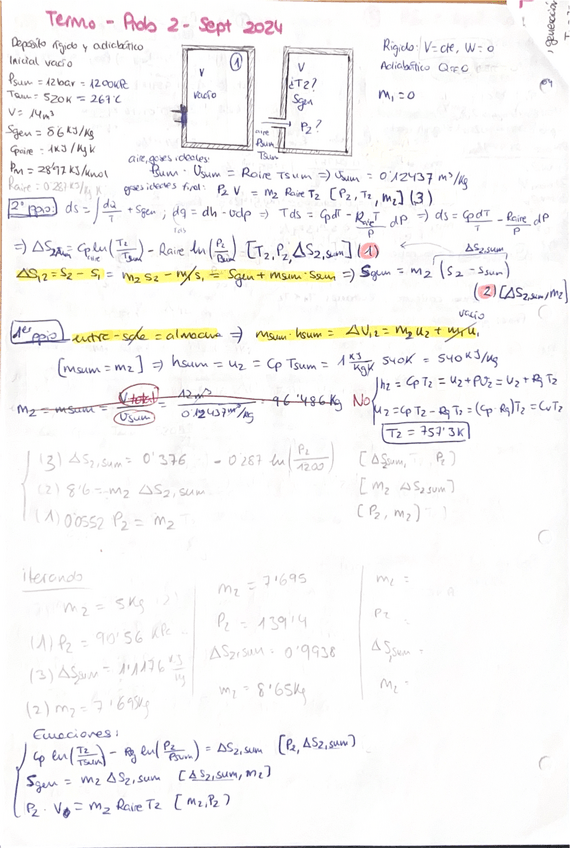 Termo - Prob 2 - Sept 2024
Depósito rígido y adiabático
Inicial vacío
Psum = 12bar = 1200KPa
Tsum = 520K = 267°C
V = 14m³
Sgen = 8'6 KJ/Kg
Cpaire = 1KJ/KgK
Pm = 28'97 KJ/Kmol
Raire = 0.287 KJ/Kg K
V
vacío
1
V
¿T2?
Sgen
P2?
aire
Psum
Tsum
Rígido: V=cte, W=0
Adiabático Q=0
m1=0
aire, gases ideales:
Psum · Vsum = Raire Tsum => Vsum = 0'12437 m³/Kg
gases ideales final: P2 V = m2 Raire T2 [P2, T2, m2] (3)
2º ppio: ds = ∫ dq/T + Sgen ; dq = dh - vdp => Tds = CpdT - RaireT/P dP => ds = CpdT/T - Raire/P dP
=> ΔS2,sum = Cp ln(T2/Tsum) - Raire ln(P2/Psum) = [T2, P2, ΔS2,sum] (1)
ΔS2,sum
ΔS1,2 = S2 - S1 = m2 s2 - m1 s1 = Sgen + msum · ssum => Sgen = m2 (s2 - ssum)
(2) [ΔS2,sum, m2]
1er ppio entre - sale = almacena => msum · hsum = ΔU1,2 = m2 u2 + m1 u1
vacío
[msum = m2] => hsum = u2 = Cp Tsum = 1 KJ/KgK 540K = 540 KJ/Kg
m2 = msum = Vtotal/Vsum = 12m³/0'12437m³/Kg = 96'486Kg No
h2 = CpT2 = u2 + PV2 = u2 + RgT2
u2 = CpT2 - RgT2 = (Cp - Rg)T2 = CvT2
T2 = 757'3K
(3) ΔS2,sum = 0'376 - 0'287 ln(P2/1200) [ΔSsum, P2]
(2) 8'6 = m2 ΔS2,sum [m2 ΔS2sum]
(1) 0'0552 P2 = m2 [P2, m2]
iterando
m2 = 5Kg
(1) P2 = 90'56 KPa
(3) ΔSsum = 1'1176 KJ/Kg
(2) m2 = 7'695Kg
m2 = 7'695
P2 = 139'4
ΔS2,sum = 0'9938
m2 = 8'65Kg
m2 =
P2
ΔS,sum =
m2 =
Ecuaciones:
Cp ln(T2/Tsum) - Rg ln(P2/Psum) = ΔS2,sum [P2, ΔS2,sum]
Sgen = m2 ΔS2,sum [ΔS2,sum, m2]
P2 · V = m2 Raire T2 [m2, P2]